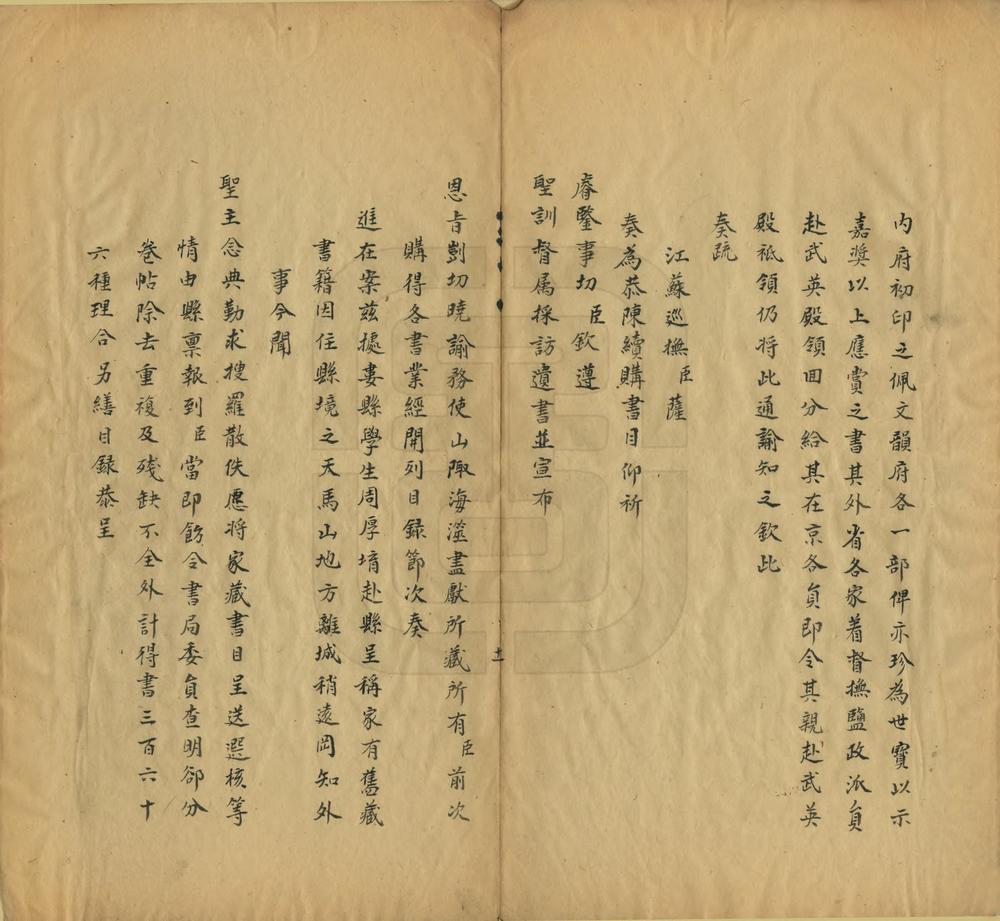 內府初印之佩文韻府各一部俾亦珍為世寶以示
嘉奬以上應賞之書其外省各家着督撫鹽政派員
赴武英殿領回分給其在京各員即令其親赴武英
殿祗領仍將此通諭知之欽此
奏疏
江蘇巡撫臣薩
奏為恭陳續購書目仰祈
睿鑒事切臣欽遵
聖訓督属採訪遺書並宣布
十一
恩㫖剴切曉諭務使山陬海澨盡獻所藏所有臣前次
購得各書業經開列目録節次奏
進在案茲據婁縣學生周厚堉赴縣呈稱家有舊藏
書籍因住縣境之天馬山地方離城稍遠罔知外
事今聞
聖主念典勤求搜羅散佚愿將家藏書目呈送選核等
情由縣稟報到臣當即飭令書局委員查明部分
卷帖除去重複及残缺不全外計得書三百六十
六種理合另繕目録恭呈